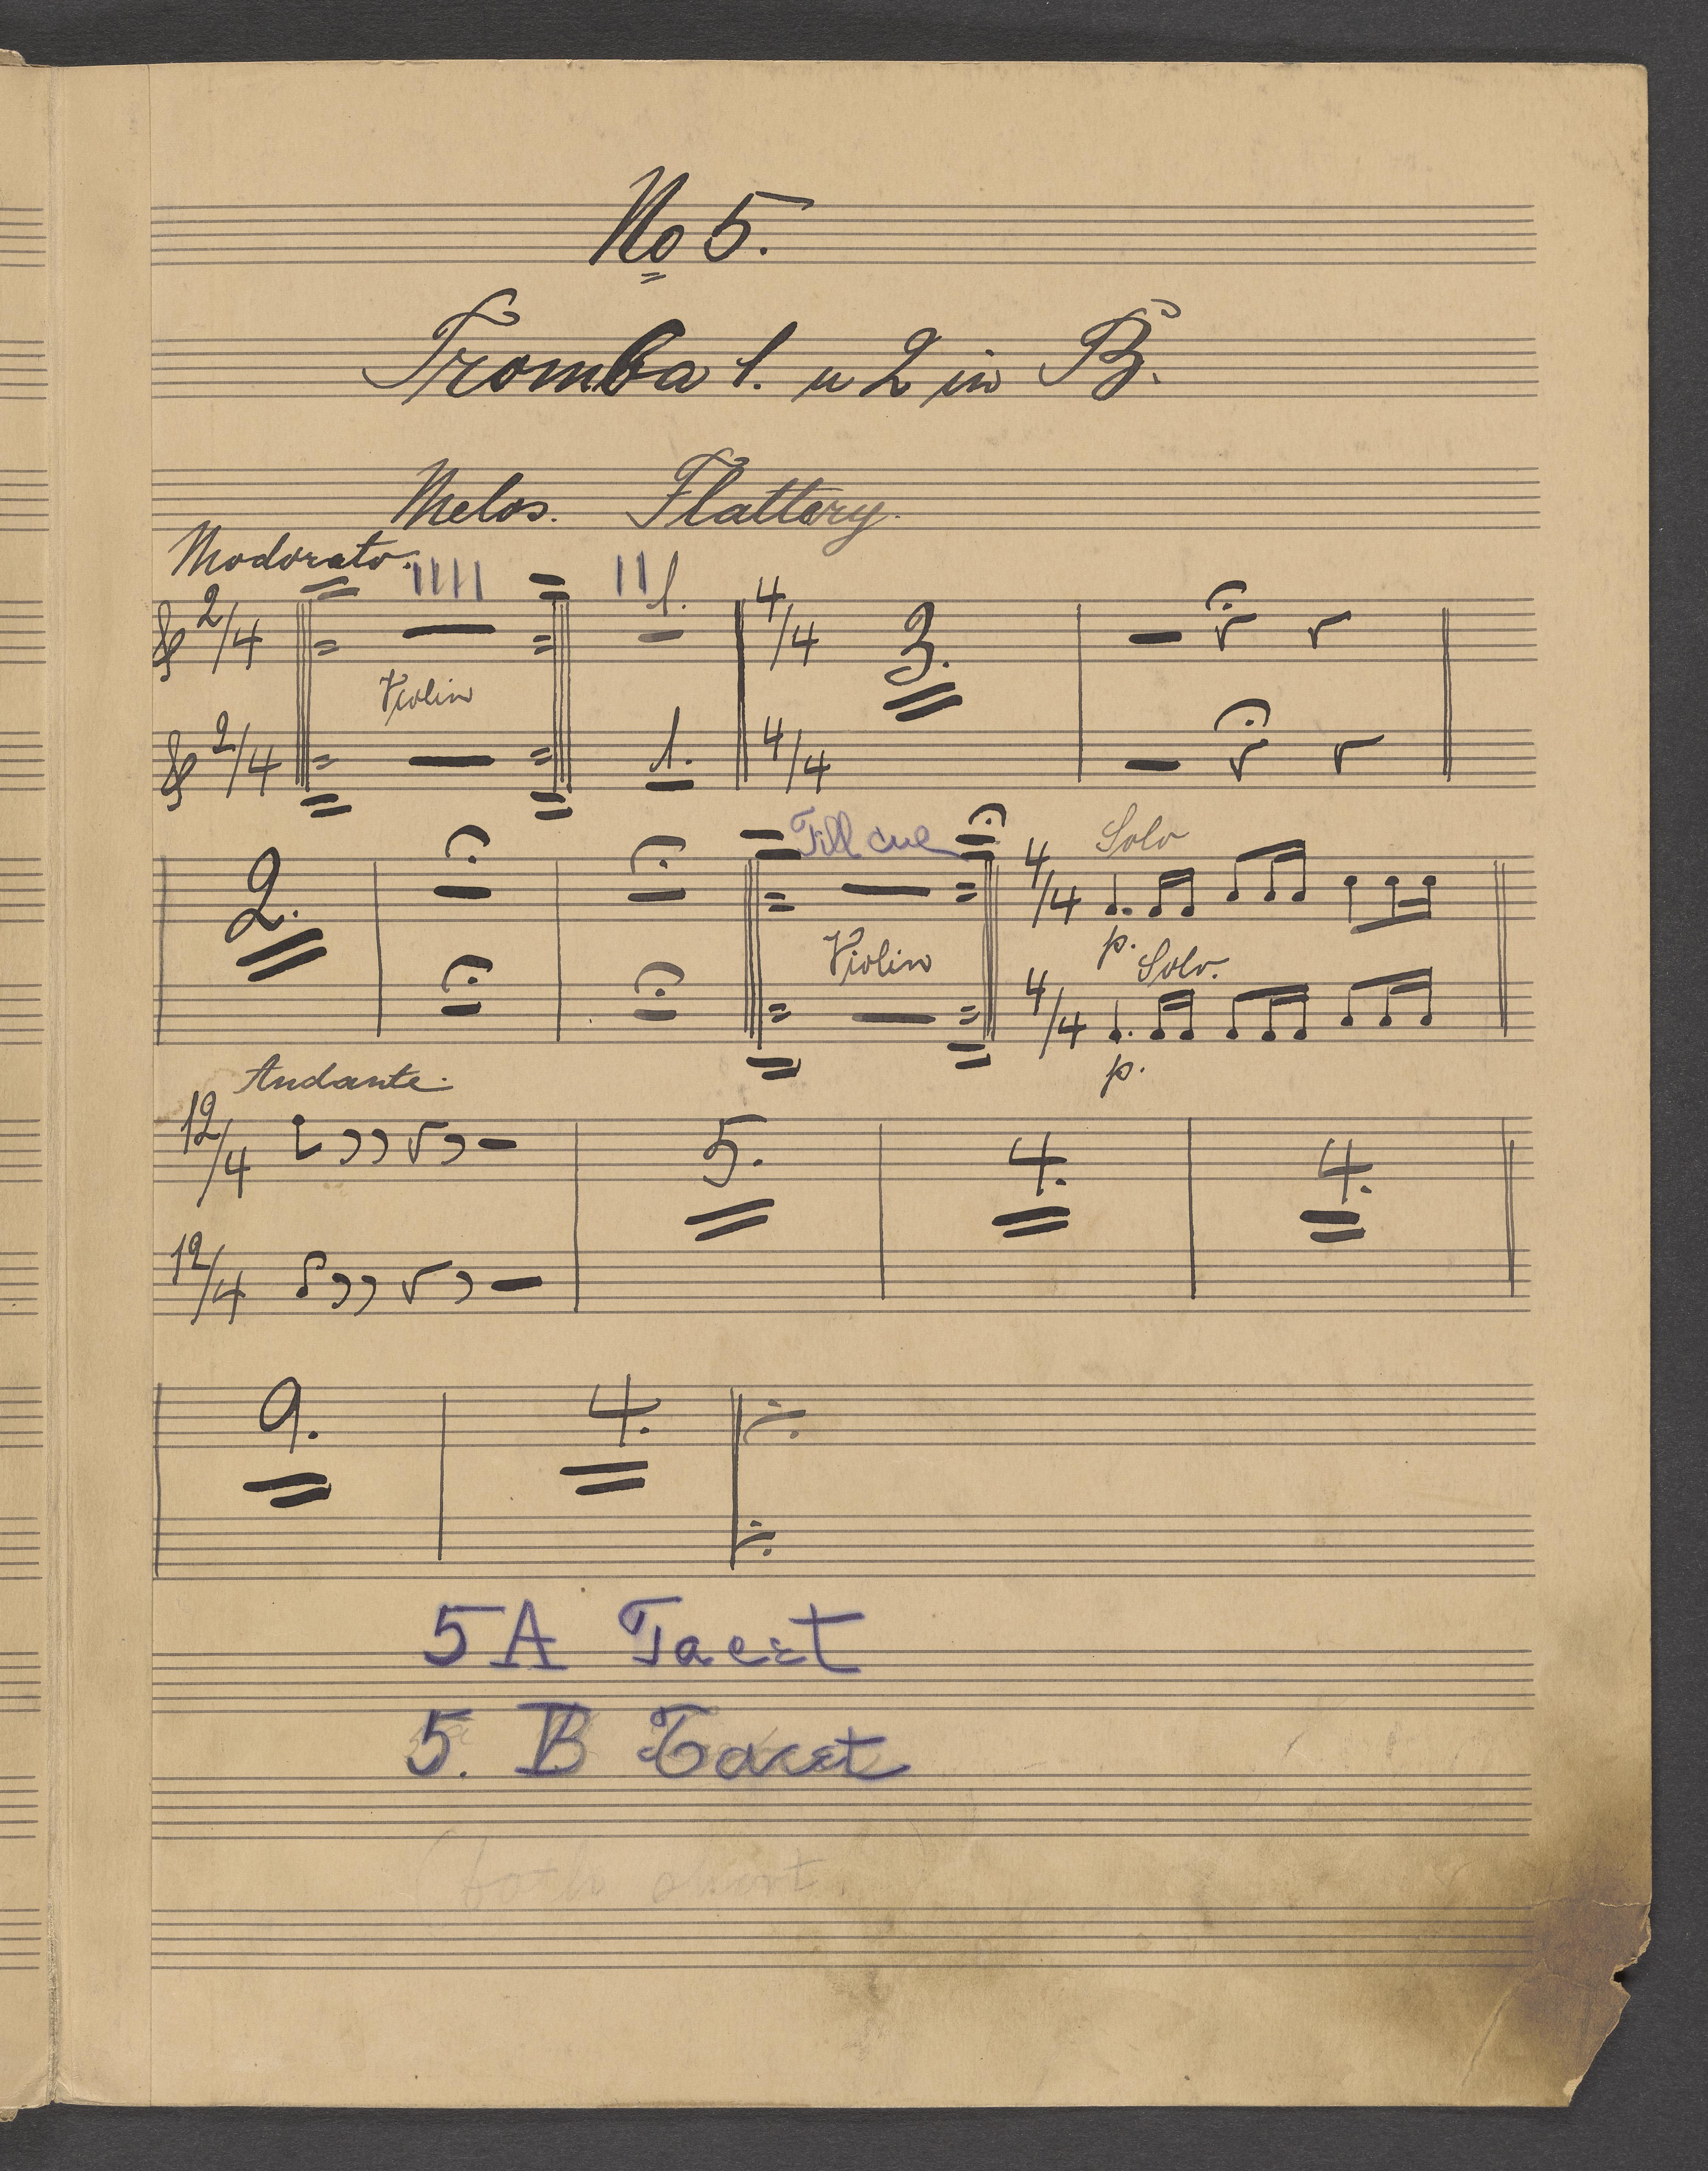 No 5.
Tromba 1. u 2 in B.
Melos. Flattery.
Moderato.
2/4 1. 4/4 3.
Violin
2/4 1. 4/4
Till cue Solo
2. 4/4
Violin p. Solo.
4/4
p.
Andante.
12/4 5. 4. 4.
12/4
9. 4.
5A Tacet
5. B Tacet